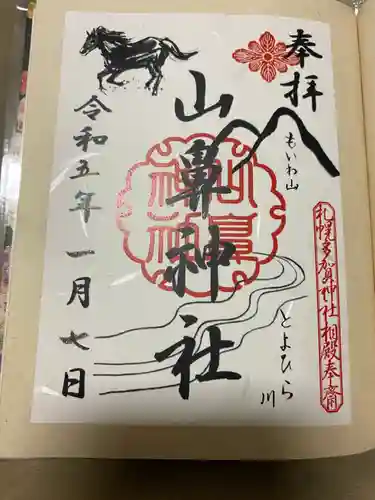 奉拝
もいわ山
札幌多賀神社相殿奉斎
山鼻神社
山鼻神社
とよひら川
令和五年一月七日